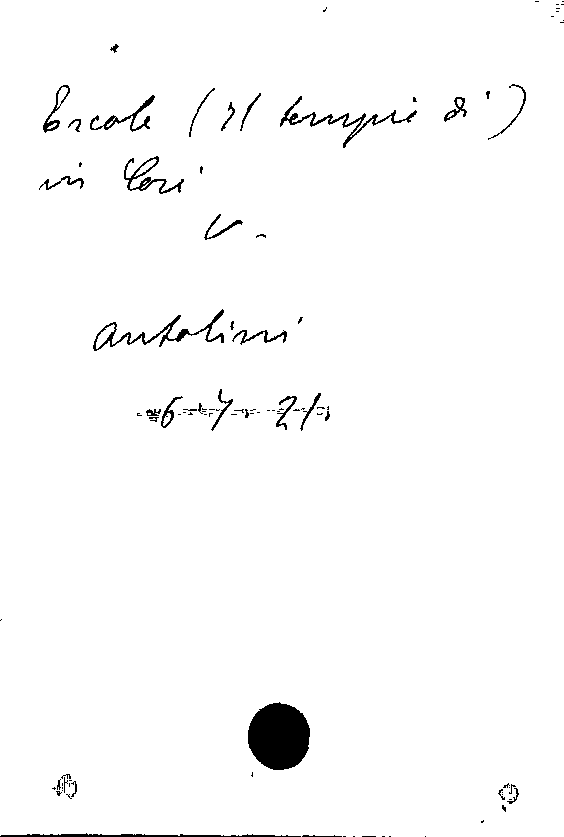 Ercole (Il tempio di)
in Cori
V.
Antolini
6-7-21